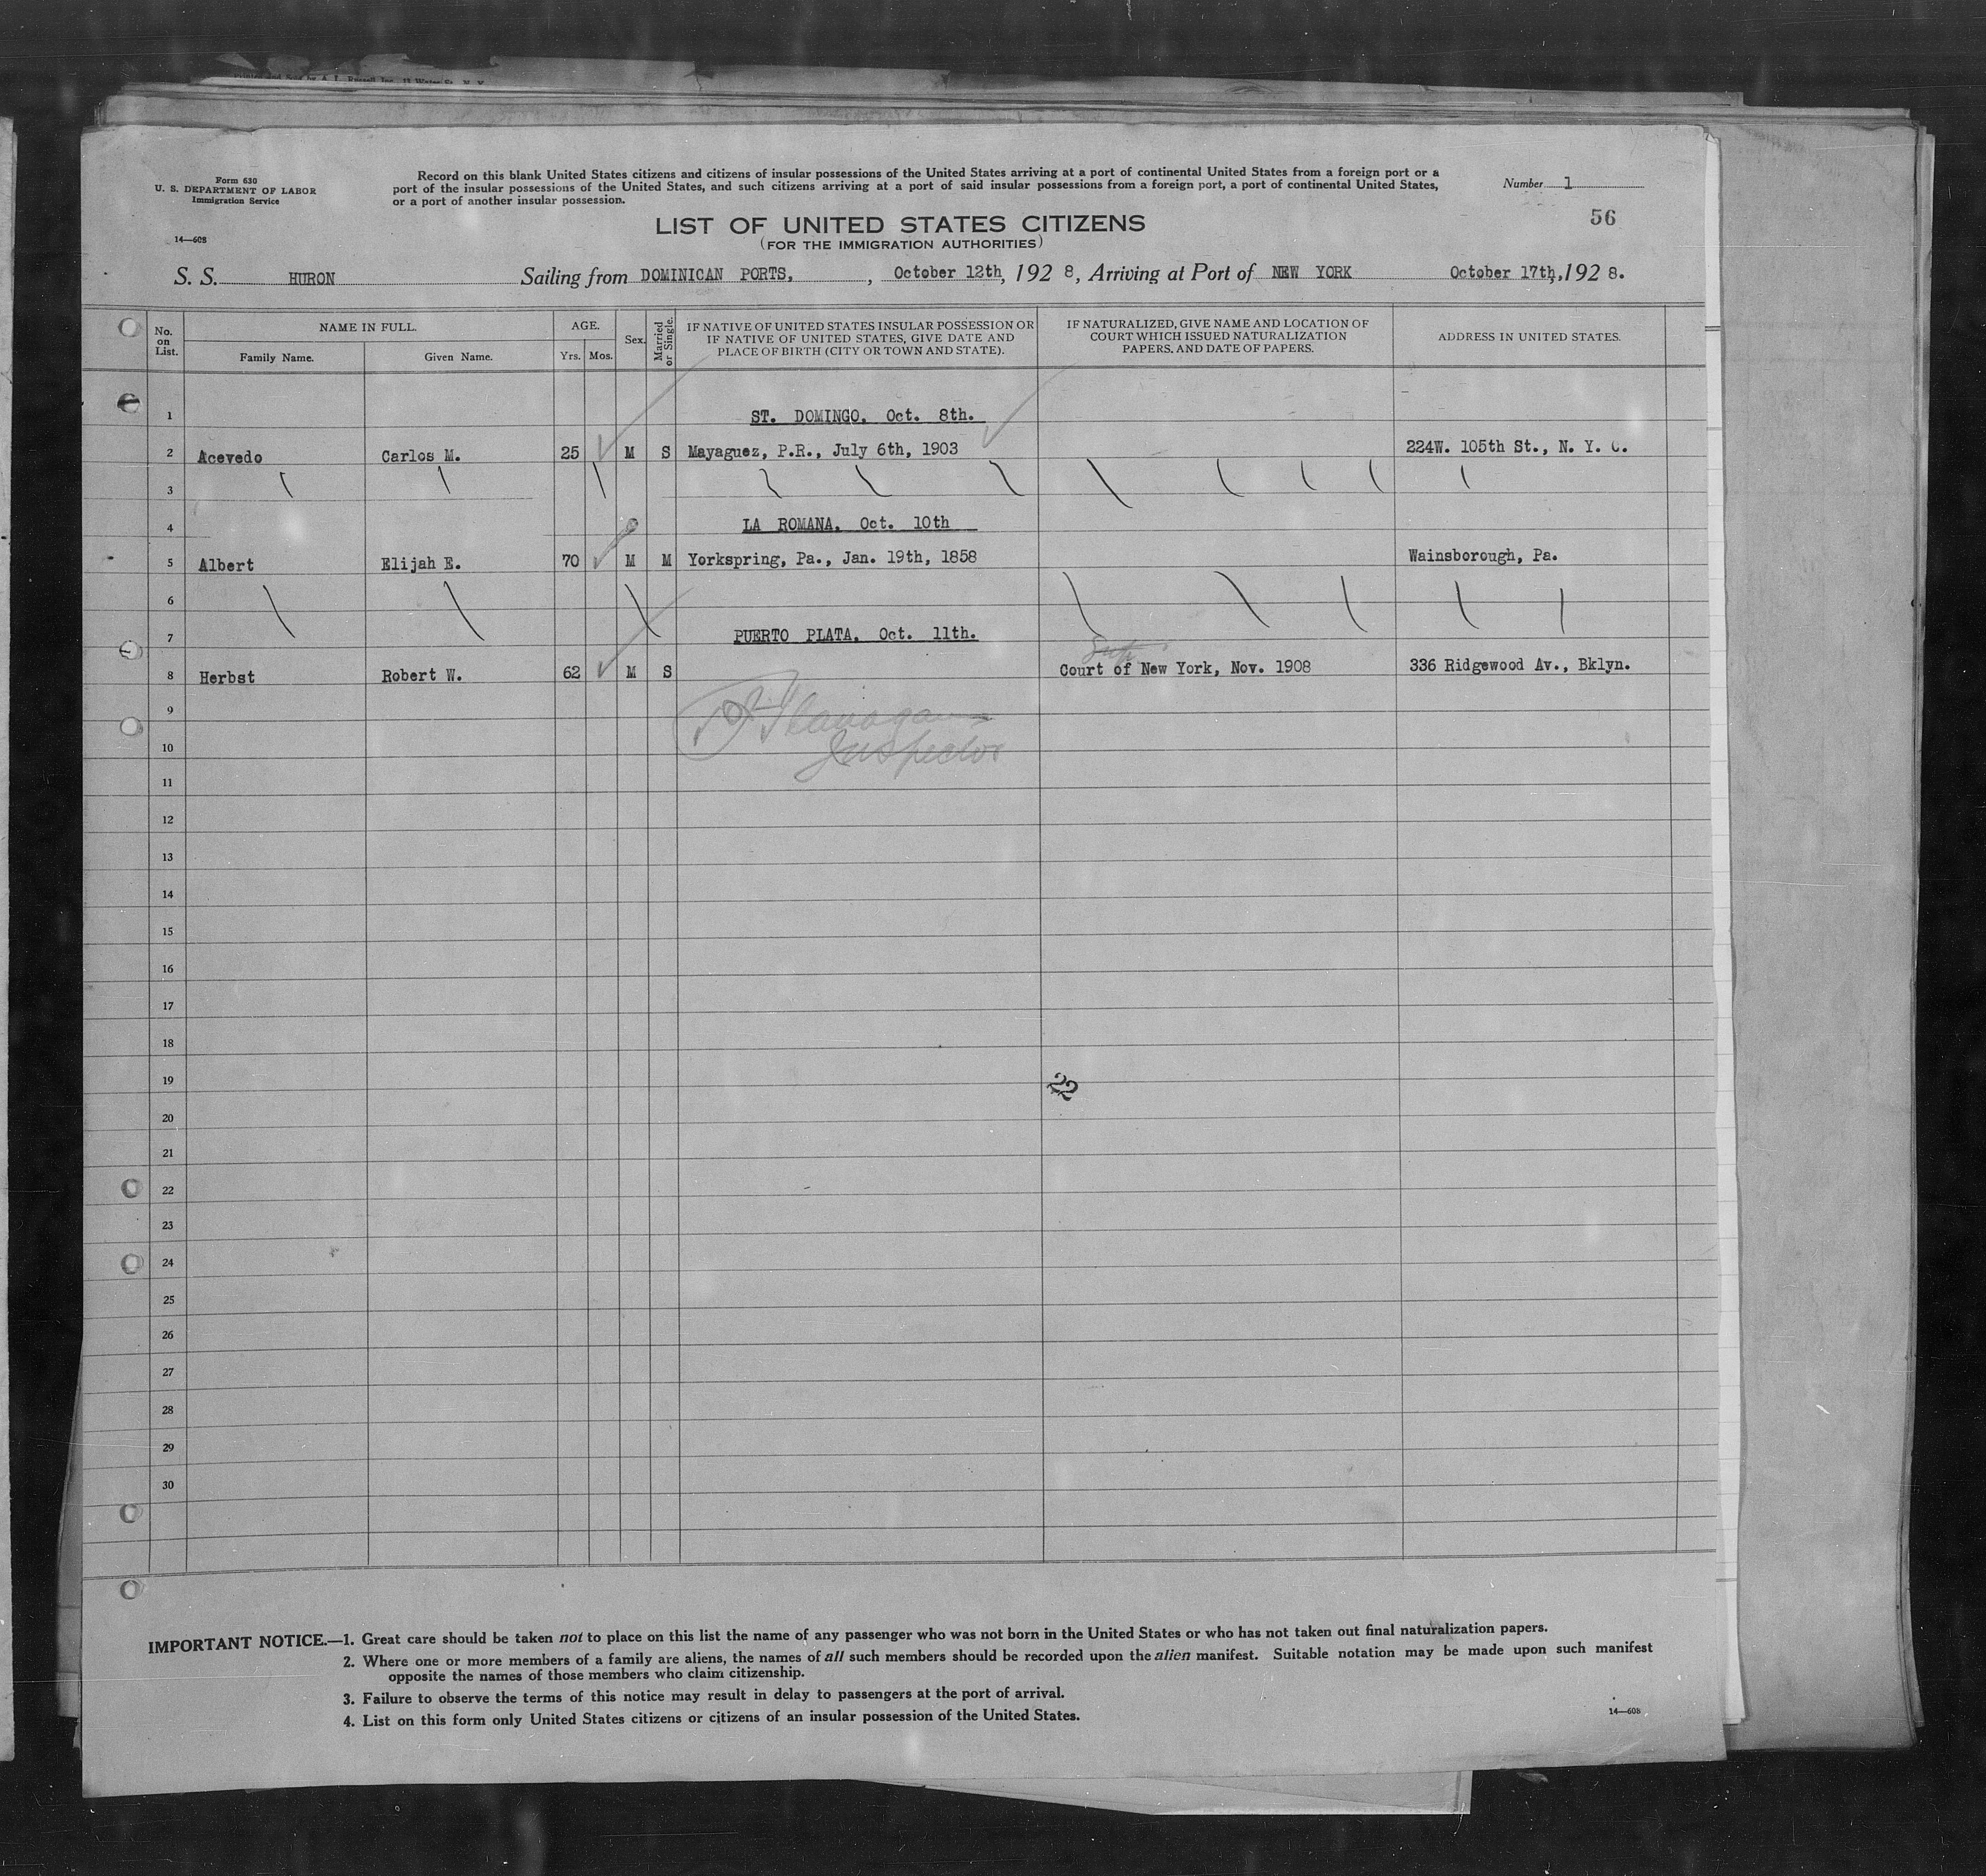 Printed and Sold by A. L. Russell Inc. 15 Water St. N. Y.
Form 630
U. S. DEPARTMENT OF LABOR
Immigration Service
14—608
Record on this blank United States citizens and citizens of insular possessions of the United States arriving at a port of continental United States from a foreign port or a
port of the insular possessions of the United States, and such citizens arriving at a port of said insular possessions from a foreign port, a port of continental United States,
or a port of another insular possession.
Number 1
56
LIST OF UNITED STATES CITIZENS
(FOR THE IMMIGRATION AUTHORITIES)
S. S. HURON Sailing from DOMINICAN PORTS, , October 12th, 1928, Arriving at Port of NEW YORK October 17th, 1928.
No. on List. NAME IN FULL. AGE. Sex. Married or Single. IF NATIVE OF UNITED STATES INSULAR POSSESSION OR IF NATIVE OF UNITED STATES, GIVE DATE AND PLACE OF BIRTH (CITY OR TOWN AND STATE). IF NATURALIZED, GIVE NAME AND LOCATION OF COURT WHICH ISSUED NATURALIZATION PAPERS, AND DATE OF PAPERS. ADDRESS IN UNITED STATES.
Family Name. Given Name. Yrs. Mos.
1 ST. DOMINGO, Oct. 8th.
2 Acevedo Carlos M. 25 M S Mayaguez, P.R., July 6th, 1903 224W. 105th St., N. Y. C.
3
4 LA ROMANA, Oct. 10th
5 Albert Elijah E. 70 M M Yorkspring, Pa., Jan. 19th, 1858 Wainsborough, Pa.
6
7 PUERTO PLATA, Oct. 11th.
Sup
8 Herbst Robert W. 62 M S Court of New York, Nov. 1908 336 Ridgewood Av., Bklyn.
9 Flanagan
10 Inspector
11
12
13
14
15
16
17
18
19 22
20
21
22
23
24
25
26
27
28
29
30
IMPORTANT NOTICE.—1. Great care should be taken not to place on this list the name of any passenger who was not born in the United States or who has not taken out final naturalization papers.
2. Where one or more members of a family are aliens, the names of all such members should be recorded upon the alien manifest. Suitable notation may be made upon such manifest
opposite the names of those members who claim citizenship.
3. Failure to observe the terms of this notice may result in delay to passengers at the port of arrival.
4. List on this form only United States citizens or citizens of an insular possession of the United States.
14—608